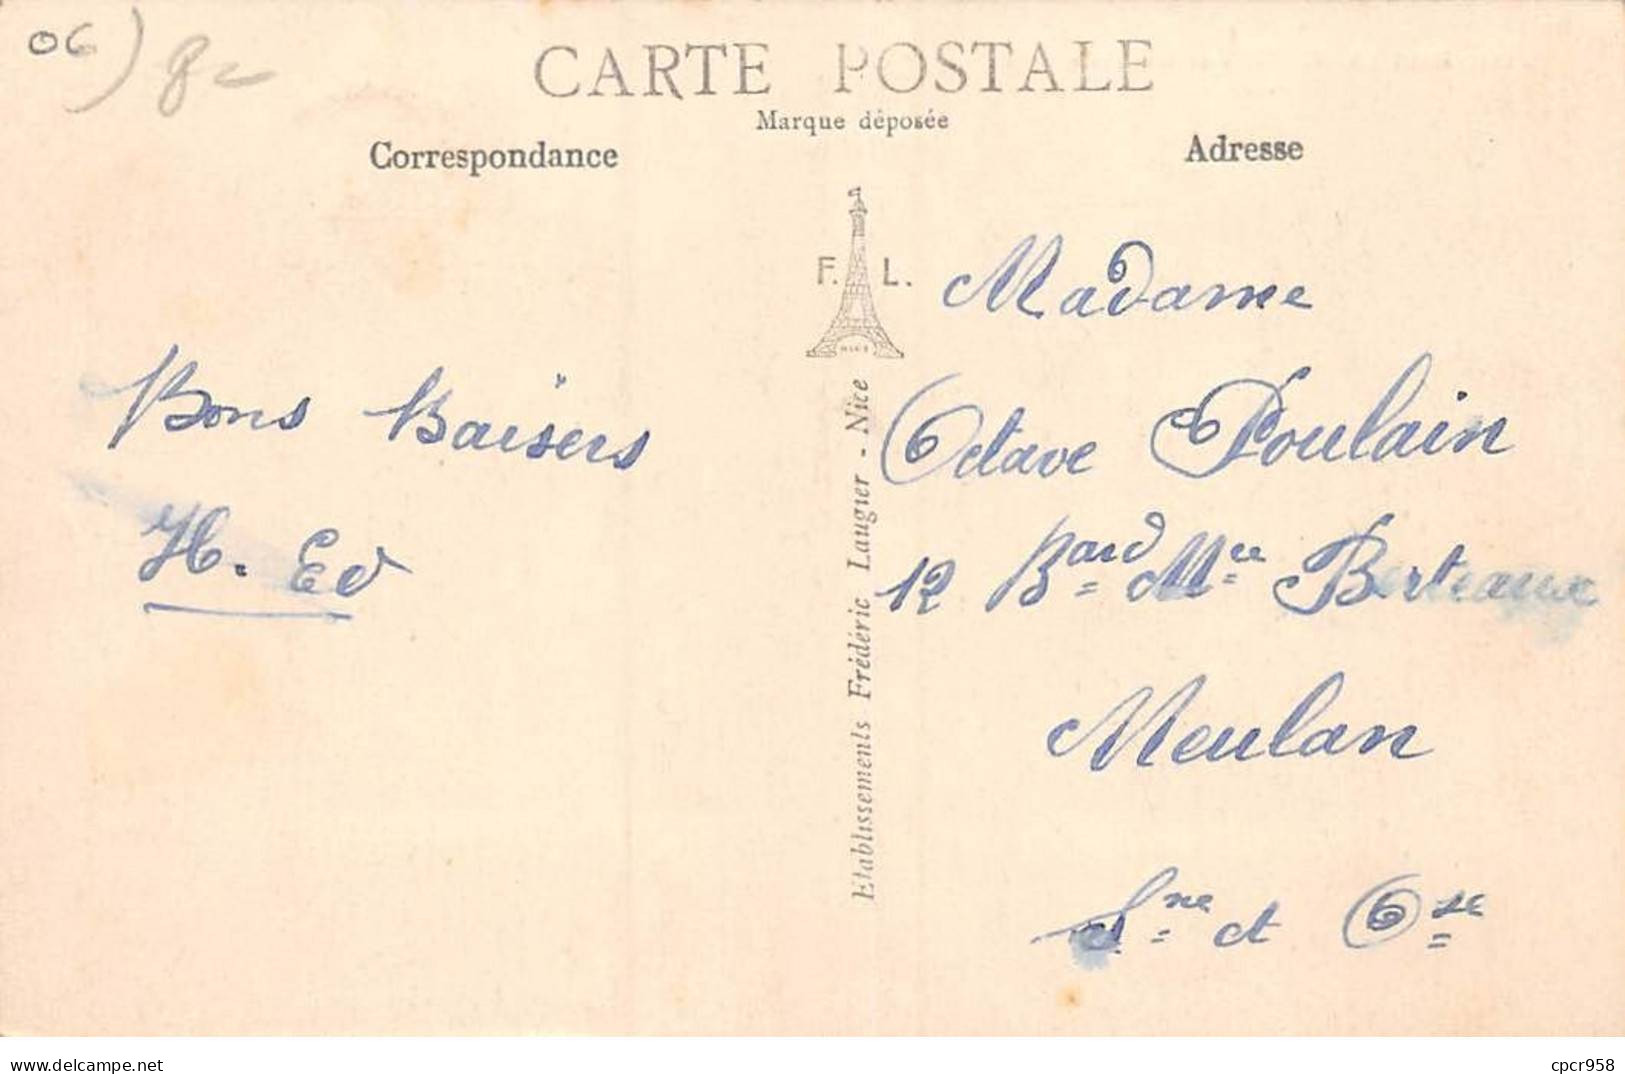 06) 8-
CARTE POSTALE
Marque déposée
Correspondance
Adresse
F. L.
NICE
Etablissements Frédéric Laugier - Nice
Bons Baisers
H. Ed
Madame
Octave Poulain
12 Bard Mce Berteaux
Meulan
Sne et Ose
www.delcampe.net
cpcr958